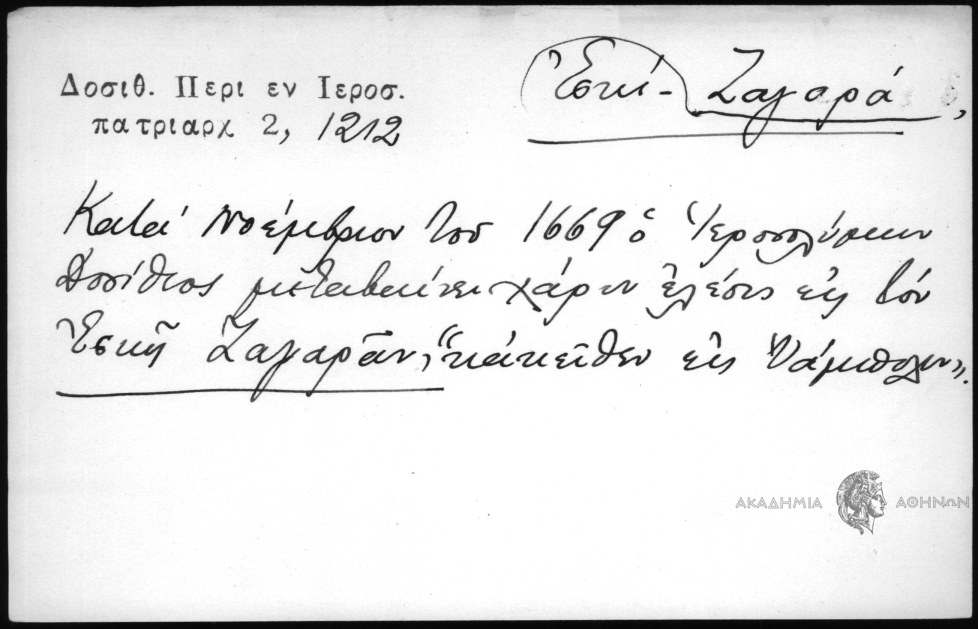 Δοσιθ. Περι εν Ιεροσ.
πατριαρχ 2, 1212
Ἐσκί - Ζαγαρά,
Κατά Νοέμβριον του 1669 ὁ Ἱεροσολύμων
Δοσίθεος μεταβαίνει χάριν ἐλέους εἰς τόν
Ἐσκῆ Ζαγαρᾶν, "κἀκεῖθεν εἰς Ὑάμπολιν».
ΑΚΑΔΗΜΙΑ ΑΘΗΝΩΝ